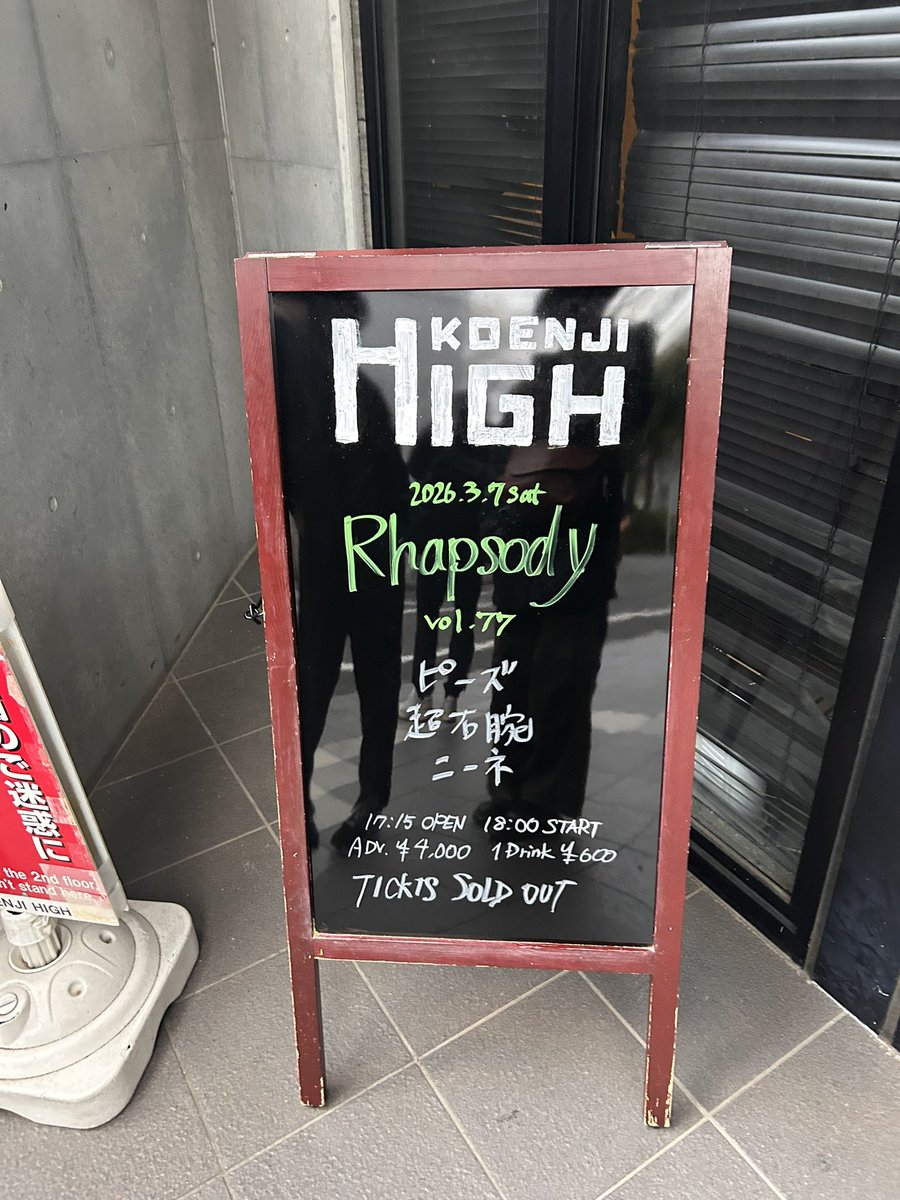 KOENJI
HIGH
2026.3.7 sat
Rhapsody
vol.77
ピーズ
超右腕
ニーネ
17:15 OPEN 18:00 START
ADV. ¥4,000 1 Drink ¥600
TICKTS SOLD OUT
のご迷惑に
the 2nd floor,
n't stand here
ENJI HIGH